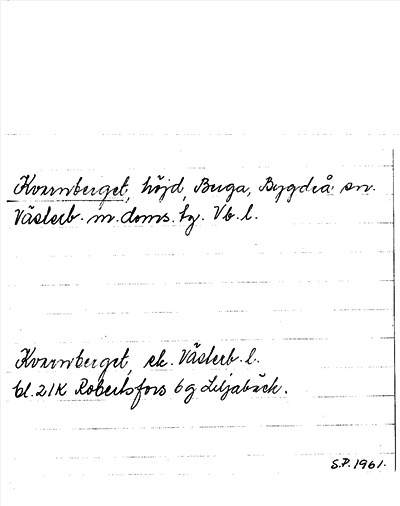 Kvarnberget, höjd, Berga, Bygdeå sn.
Västerb. m. doms. tg. Vb. l.
Kvarnberget, ek. Västerb. l.
bl. 21K Robertsfors 6 g Liljabäck.
S.P. 1961.